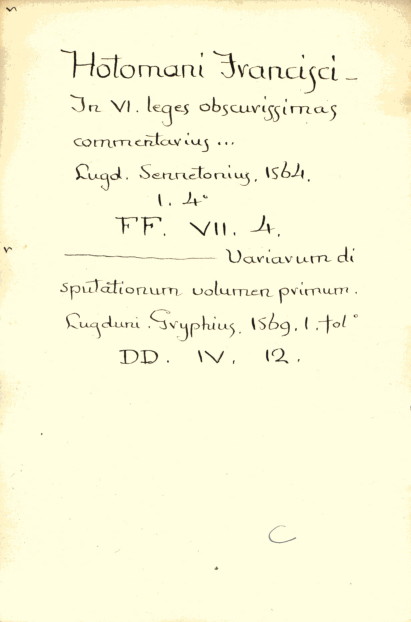 Hotomani Francisci -
In VI. leges obscurissimas
commentarius ...
Lugd. Sennetonius, 1564.
1. 4°
FF. VII. 4.
——— Variarum di
sputationum volumen primum.
Lugduni. Gryphius, 1569. 1. fol°
DD. IV. 12.
C